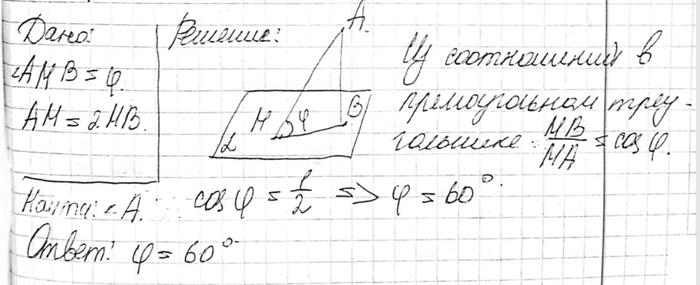 Дано:
∠AMB = φ.
AM = 2MB.
Найти: ∠A.
Решение:
A
M φ B
α
Из соотношений в
прямоугольном треу-
гольнике: MB/MA = cos φ.
cos φ = 1/2 => φ = 60°.
Ответ: φ = 60°